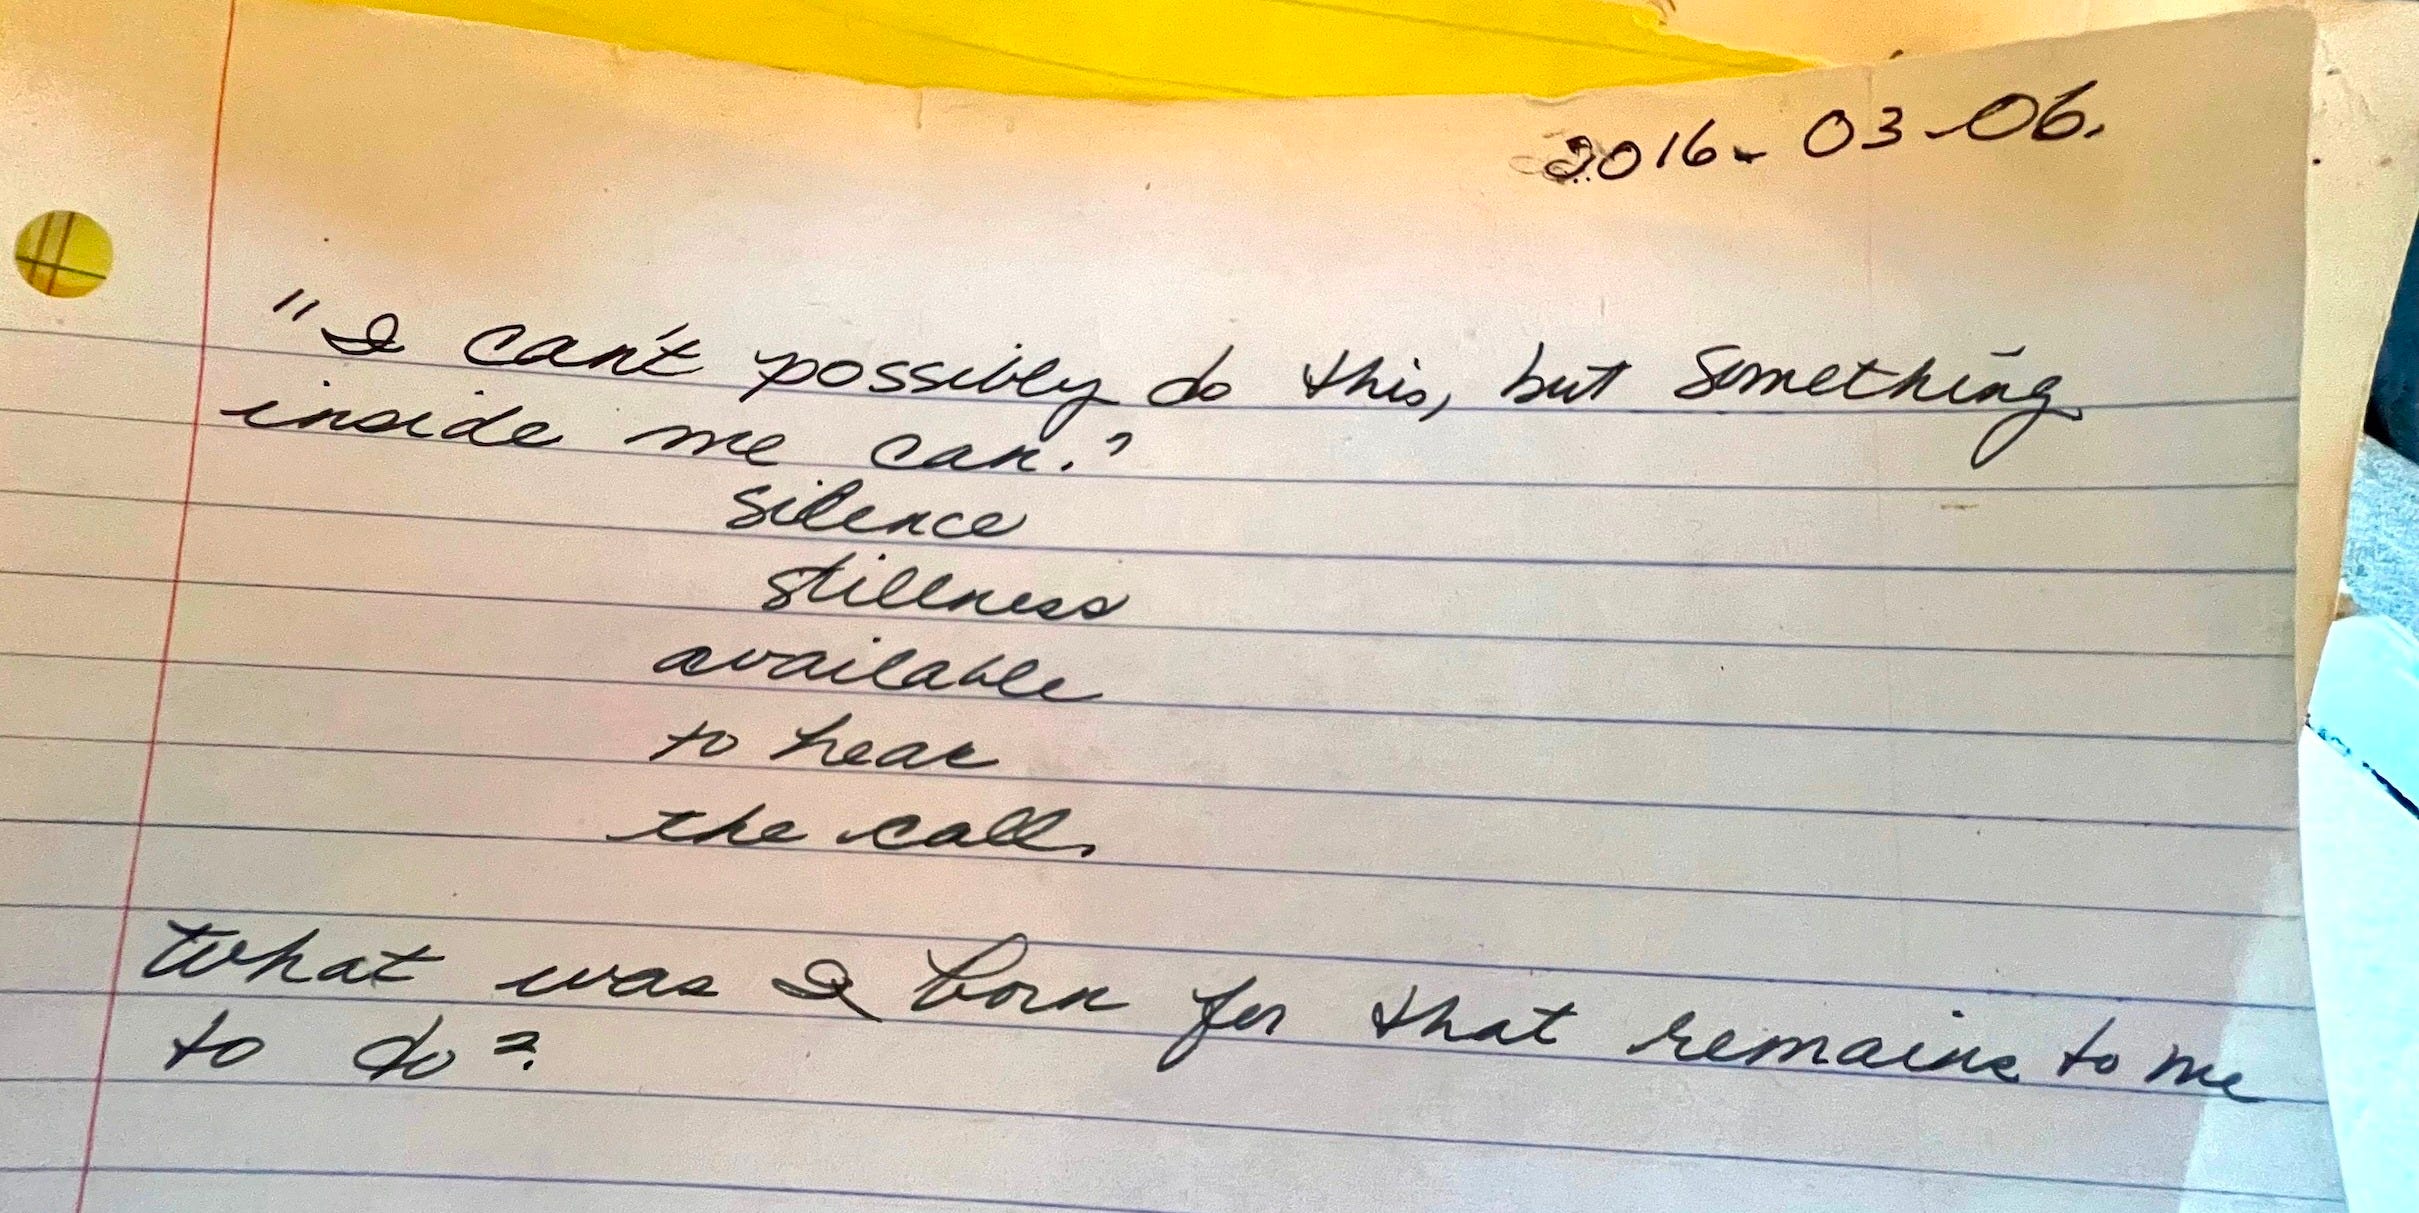 2016-03-06.
"I can't possibly do this, but something
inside me can."
silence
stillness
available
to hear
the call.
What was I born for that remains to me
to do?